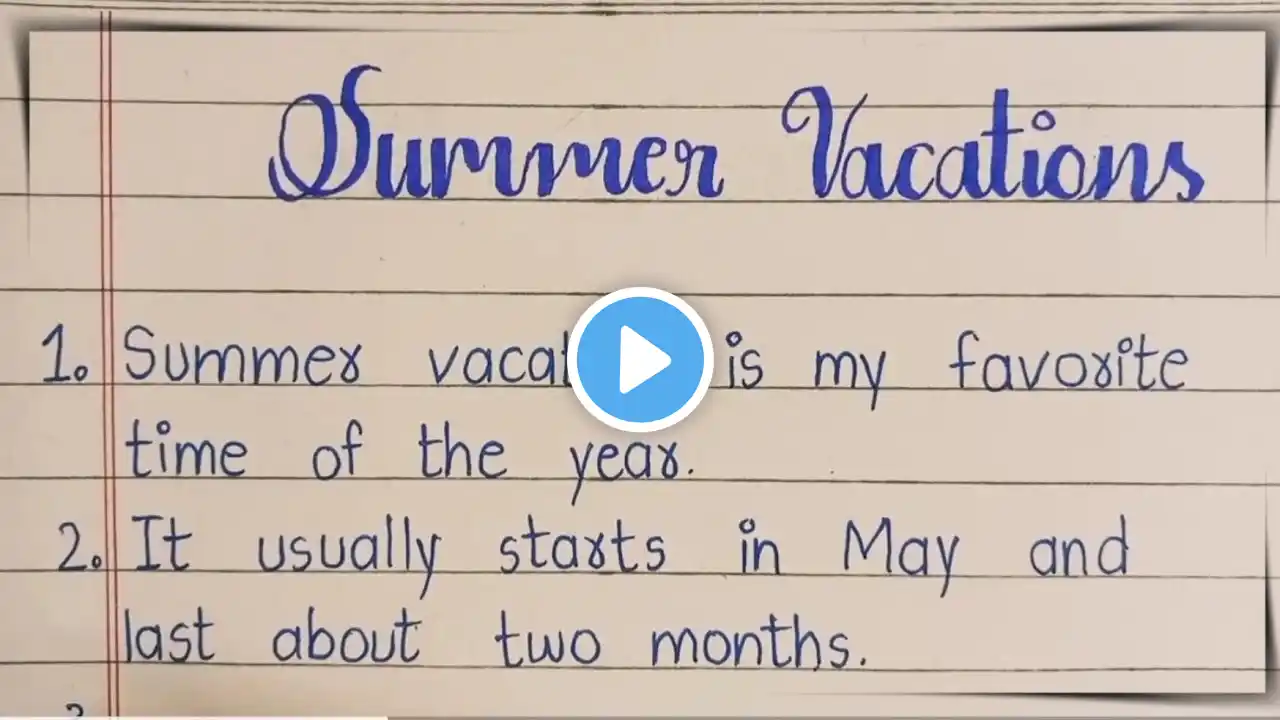 Summer Vacations
1. Summer vacat is my favorite
time of the year.
2. It usually starts in May and
last about two months.